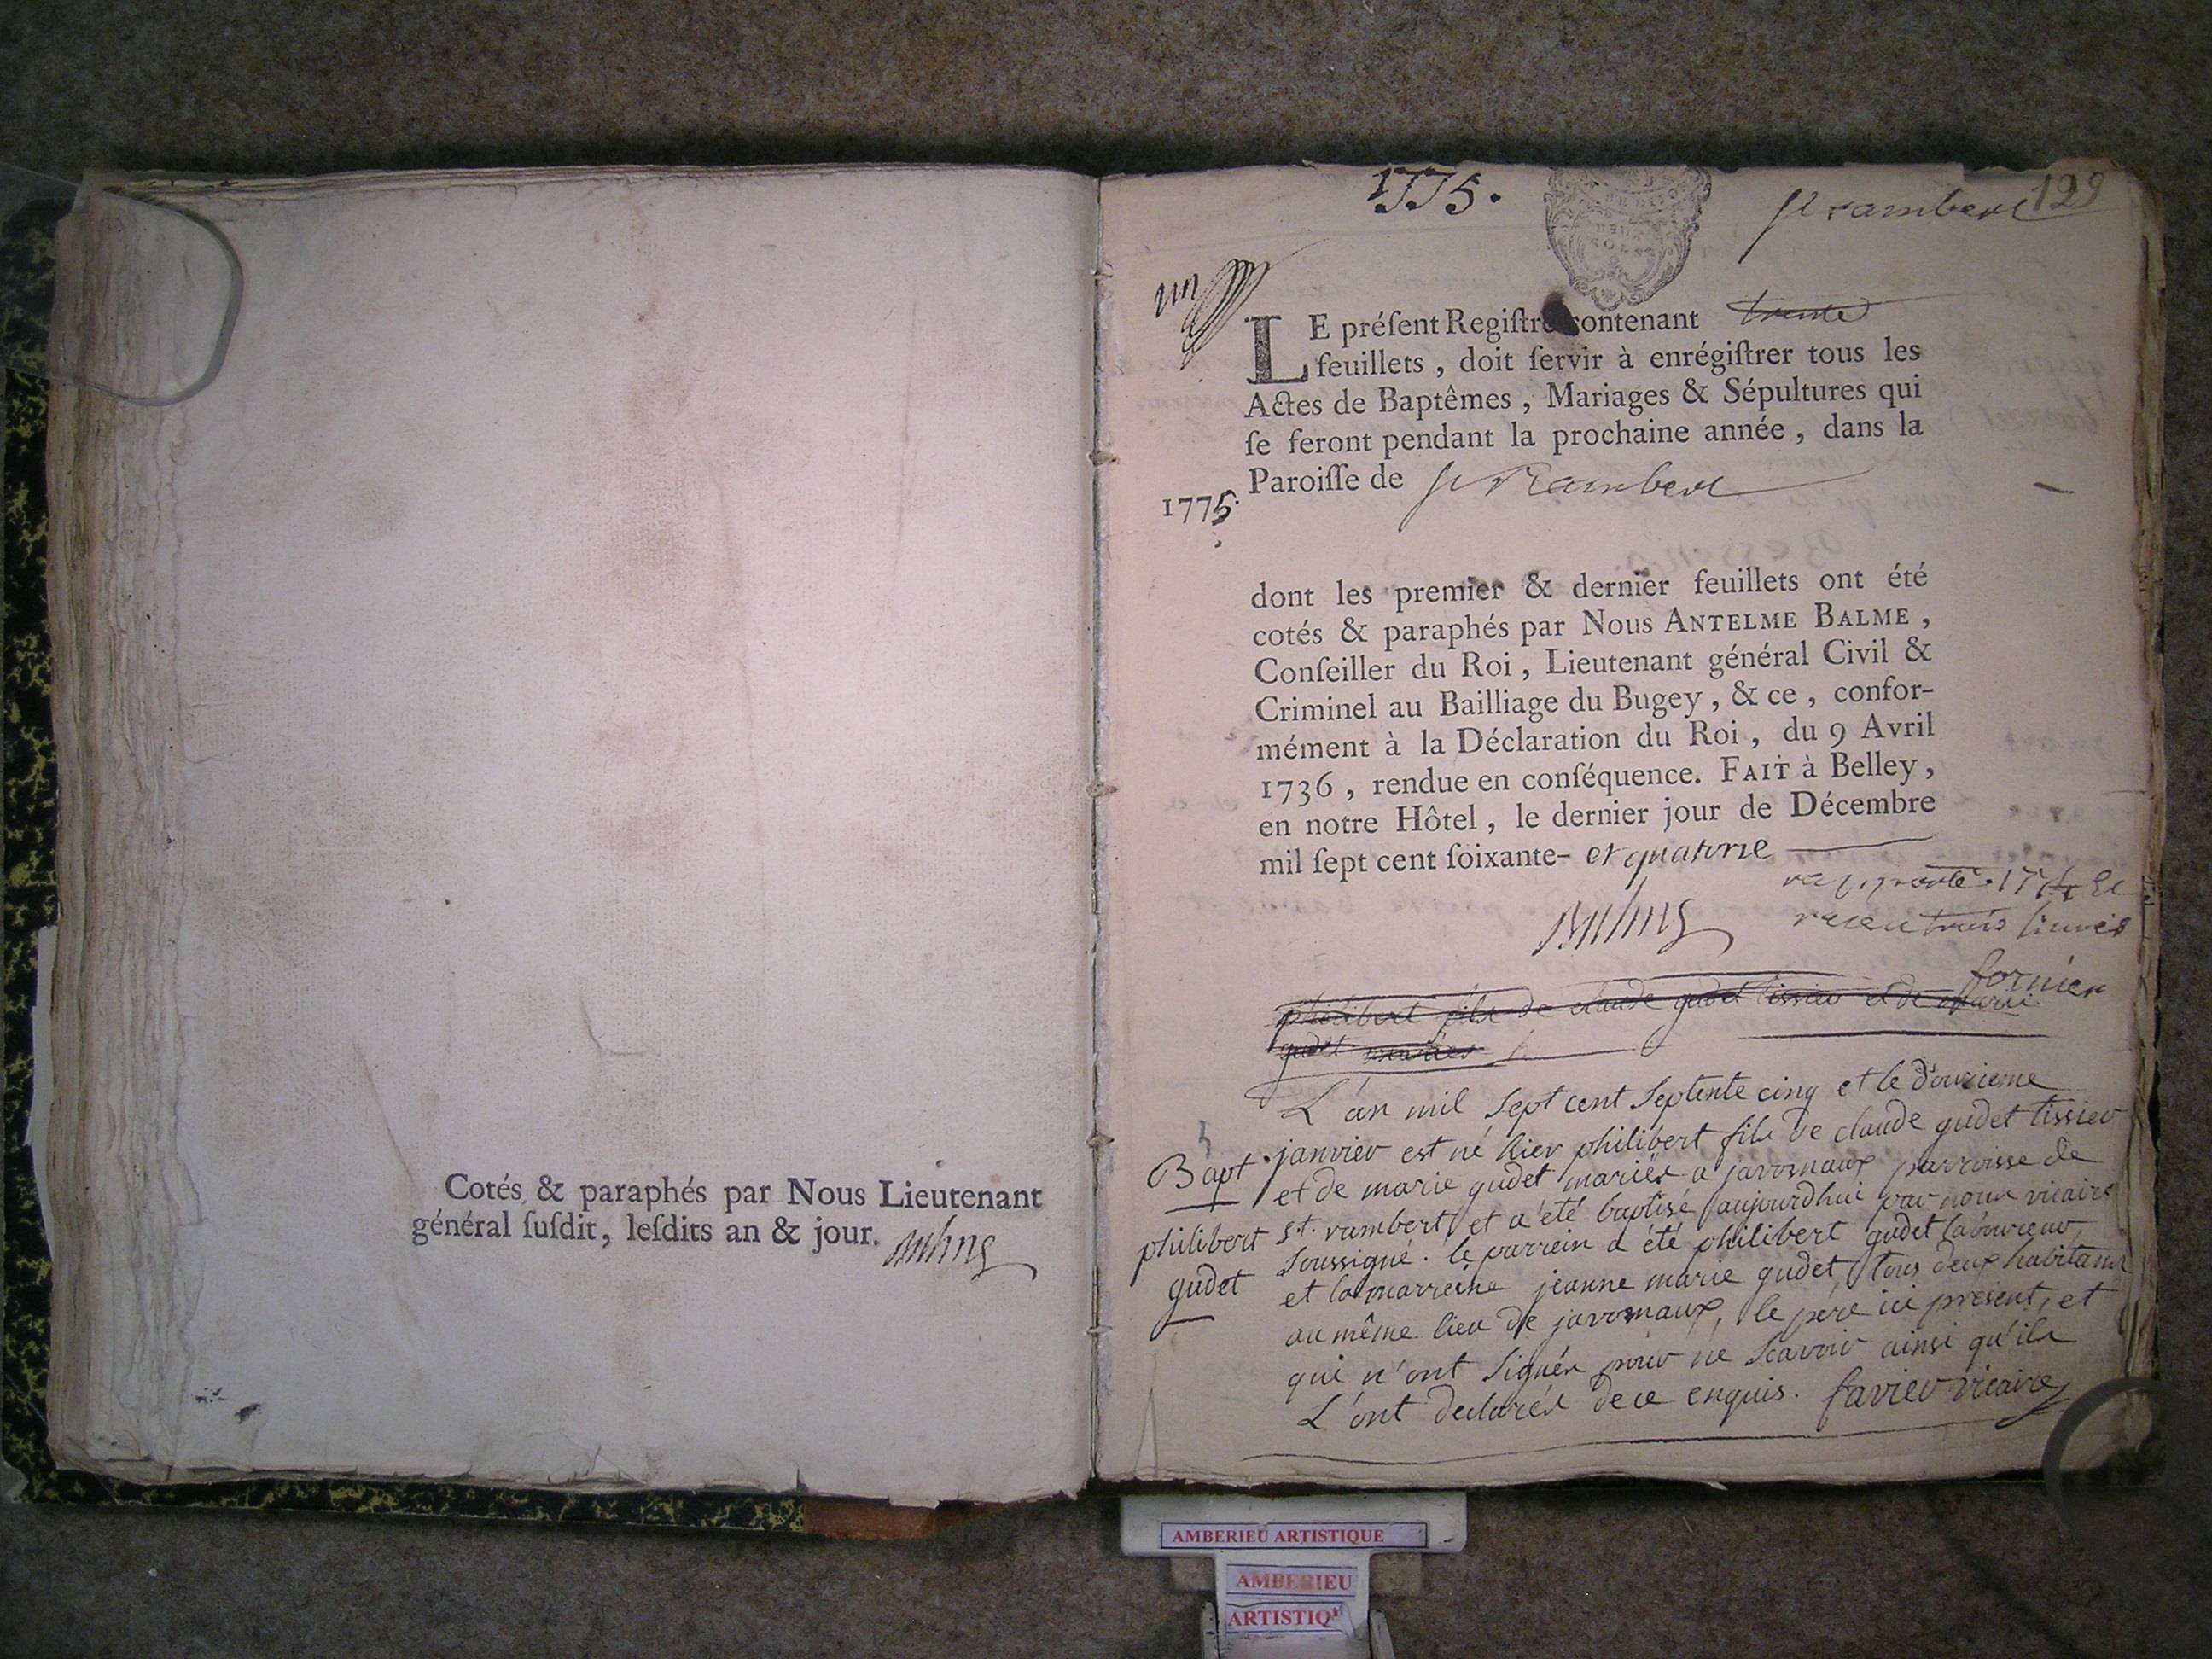 Cotés & paraphés par Nous Lieutenant
général ſuſdit, leſdits an & jour.
1775.
St rambert
129
un
LE préſent Regiſtre contenant trente
feuillets, doit ſervir à enrégiſtrer tous les
Actes de Baptêmes, Mariages & Sépultures qui
ſe feront pendant la prochaine année, dans la
Paroiſſe de St Rambert
1775.
dont les premier & dernier feuillets ont été
cotés & paraphés par Nous ANTELME BALME,
Conſeiller du Roi, Lieutenant général Civil &
Criminel au Bailliage du Bugey, & ce, confor-
mément à la Déclaration du Roi, du 9 Avril
1736, rendue en conſéquence. FAIT à Belley,
en notre Hôtel, le dernier jour de Décembre
mil ſept cent ſoixante- et quatorze
rapporté 1774 et
receu trois livres
fornier
philibert fils de claude gudet tissier et de marie
gudet mariés
L'an mil sept cent septente cinq et le douzieme
janvier est né hier philibert fils de claude gudet tissier
et de marie gudet mariés a javornaux parroisse de
st. rambert, et a été baptisé aujourdhui par nous vicaire
soussigné. le parrein a été philibert gudet laboureur,
et la marreine jeanne marie gudet, tous deux habitans
au même lieu de javornaux, le père ici présent, et
qui n'ont signés pour ne scavoir ainsi qu'ils
L'ont declarés de ce enquis. favier vicaire
Bapt
philibert
gudet
AMBERIEU ARTISTIQUE
AMBERIEU
ARTISTIQ